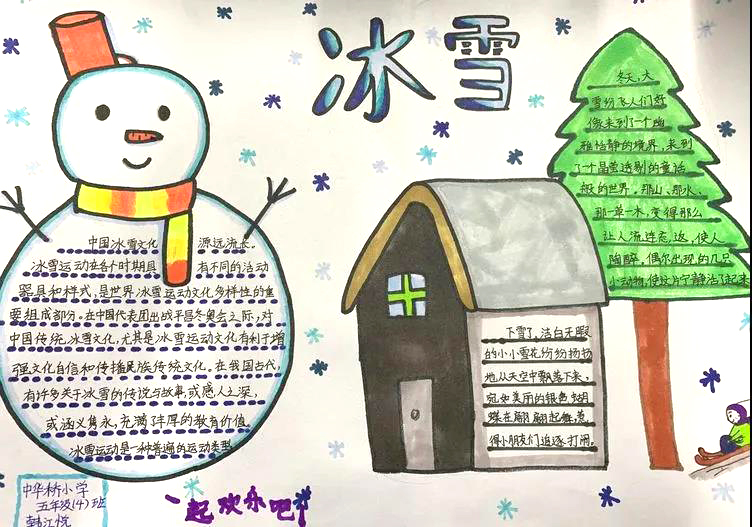 冰雪
中国冰雪文化 源远流长。
冰雪运动在各个时期具有不同的活动
器具和样式,是世界冰雪运动文化多样性的重
要组成部分。在中国代表团出战平昌冬奥会之际,对
中国传统冰雪文化,尤其是冰雪运动文化有利于增
强文化自信和传播民族传统文化。在我国古代,
有许多关于冰雪的传说与故事,或感人之深,
或涵义隽永,充满了丰厚的教育价值。
冰雪运动是一种普遍的运动类型
下雪了,洁白无瑕
的小小雪花纷纷扬扬
地从天空中飘落下来,
宛如美丽的银色蝴
蝶在翩翩起舞,惹
得小朋友们追逐打闹。
冬天,大
雪纷飞人们好
像来到了一个幽
雅恬静的境界,来到
了一个晶莹透剔的童话
般的世界。那山、那水、
那一草一木,变得那么
让人流连忘返,使人
陶醉,偶尔出现的几只
小动物,使这片宁静活了起来
中华桥小学
五年级(4)班
韩江悦
一起欢乐吧!